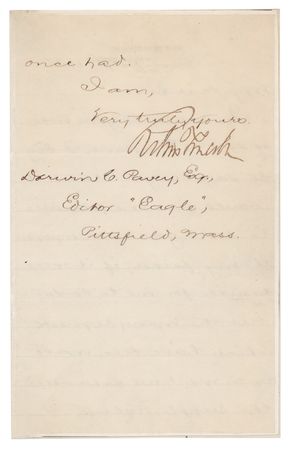 once had.
I am,
Very truly yours.
Darwin C. Pavey, Esq.,
Editor "Eagle",
Pittsfield, Mass.